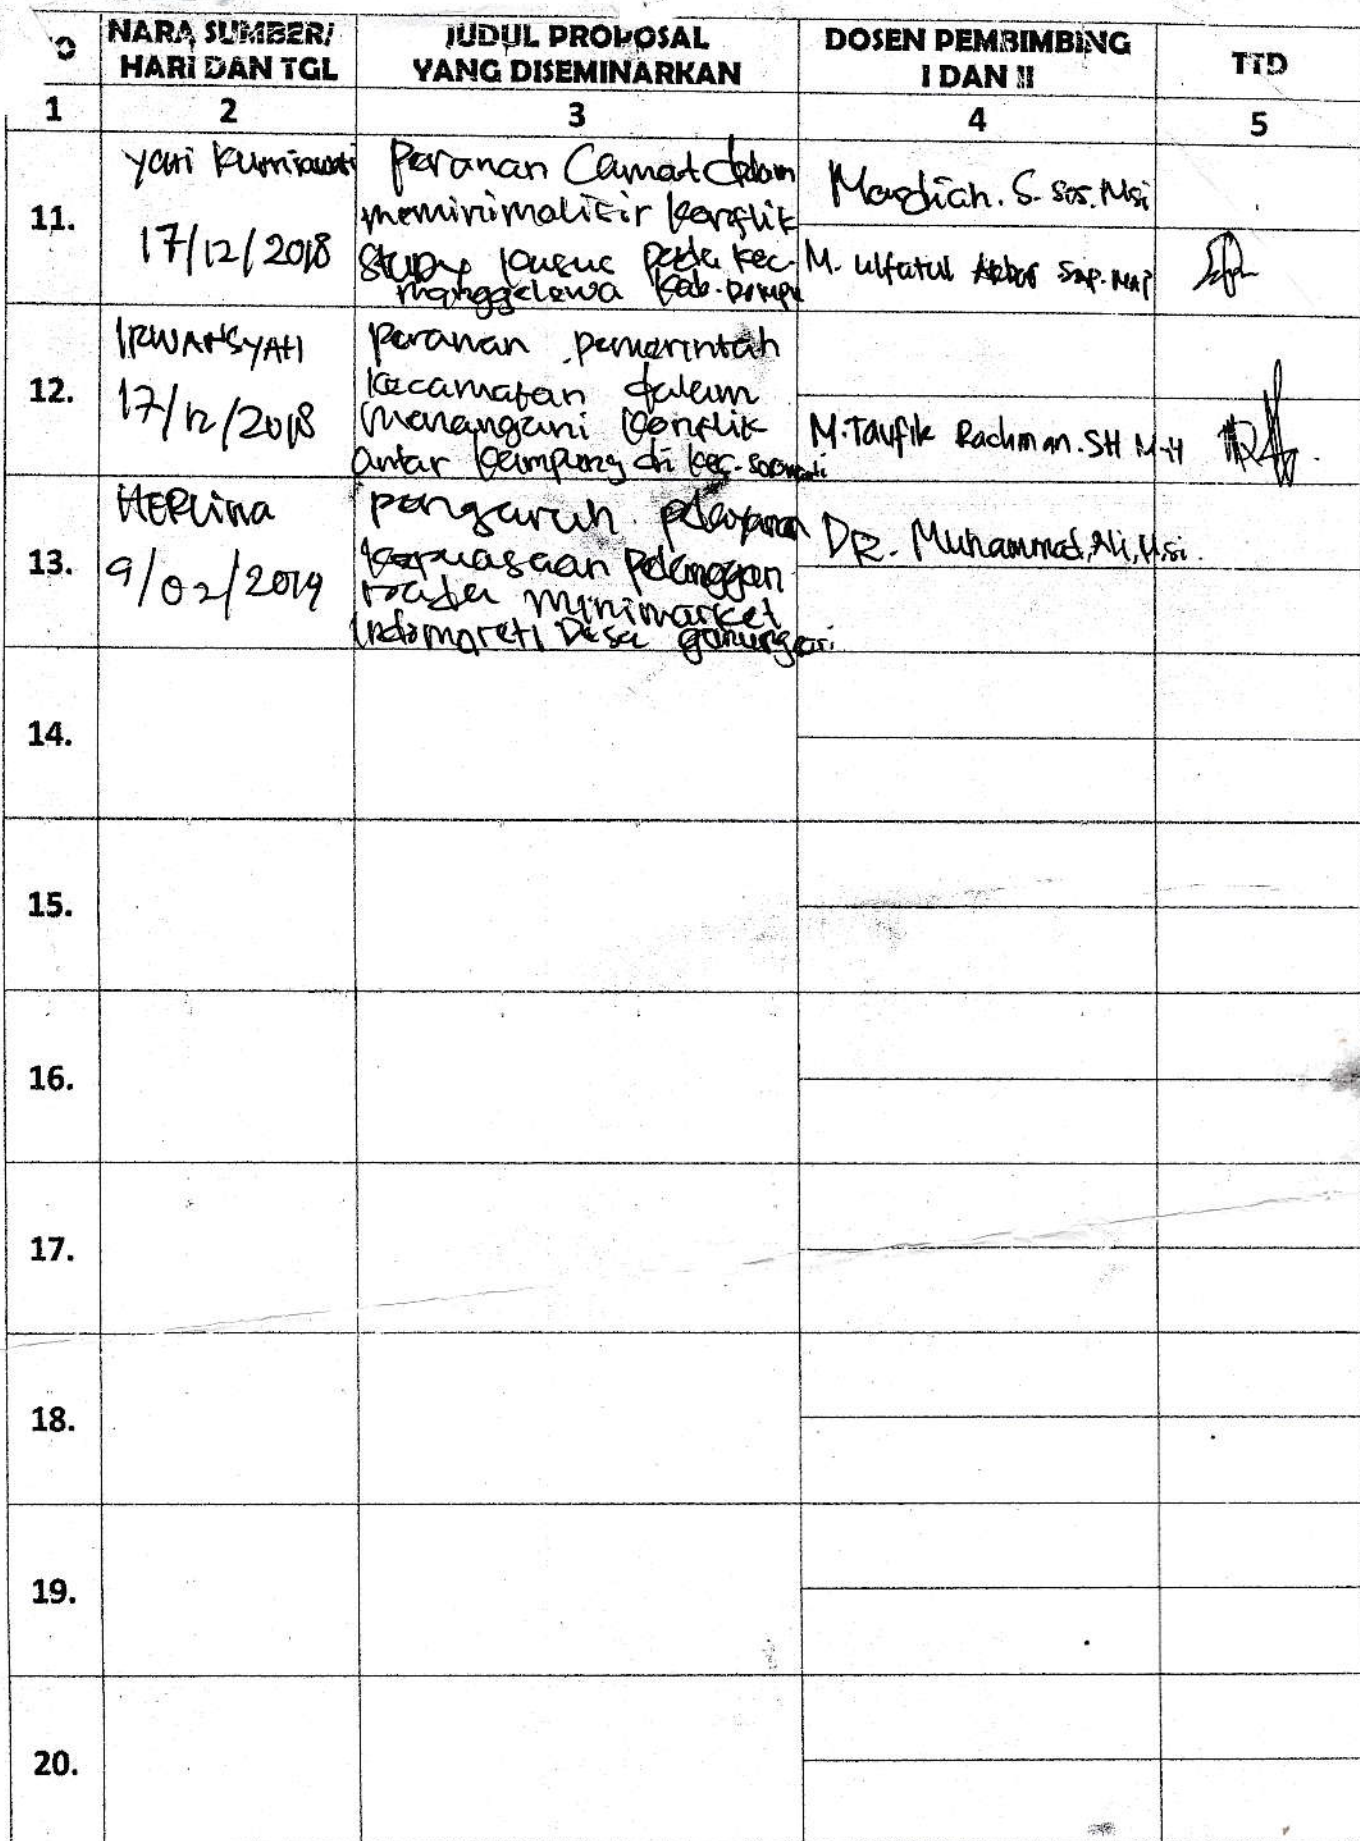 NARA SUMBER/
HARI DAN TGL
JUDUL PROPOSAL
YANG DISEMINARKAN
DOSEN PEMBIMBING
I DAN II
TTD
1
2
3
4
5
11.
Yati Kurniawati
17/12/2018
Peranan Camat dalam
meminimalisir konflik
study kasus pada kec.
manggelewa kab. Dompu
Mardiah. S. Sos. Msi
M. Ulfatul Akbar Sap. Map
12.
IRWANSYAH
17/12/2018
peranan pemerintah
kecamatan dalam
menangani konflik
antar kampung di kec.
M. Taufik Rachman. SH M.H
13.
HERLINA
9/02/2019
pengaruh pelayanan
kepuasaan pelanggan
pada minimarket
Desa gunungsari
DR. Muhammad, Ali, M.si.
14.
15.
16.
17.
18.
19.
20.